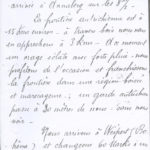 arrivée à Annaberg sur les 8h.
La frontière autrichienne est à
15 kilomètres - à travers bois nous nous
en approchons à 3 Kms - Au moment
un orage éclate avec forte pluie nous
profitons de l'occasion et franchissons
la frontière dans une région boisée
et marécageuse ; un garde autrichien
passe à 20 mètres de nous sans nous
voir -
Nous arrivons à Weipert (Bo
hême) et changeons 60 Marks à un